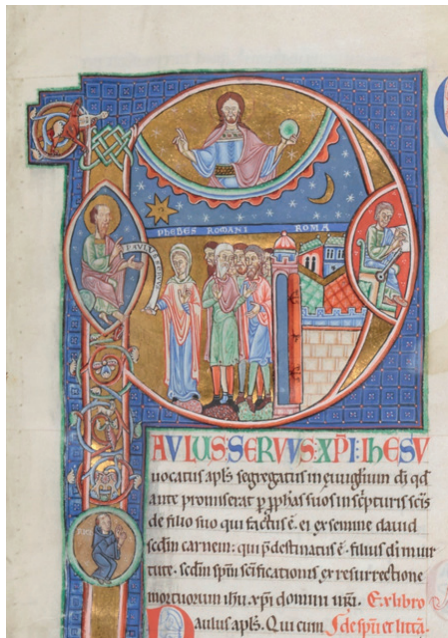 PHEBES ROMANI ROMA
PAVLVS
AVLUS SERVVS: XP̅I: IHESV
uocatus apl̅s segregatus in euuḡlium di̅ qd̅
ante promiserat p̱ ꝓph̅as suos in sc̅pturis sc̅is
de filio suo qui factus ē. ei ex semine dauid
sc̅dm carnem: qui p̅destinatus ē. filius di̅ in uir
tute. sc̅dm sp̅m sc̅ificationis ex resurrectione
mortuorum ih̅u. xp̅i domini nr̅i. Ex libro
Paulus apl̅s. Qui cum S de sp̅u et litt̅a.